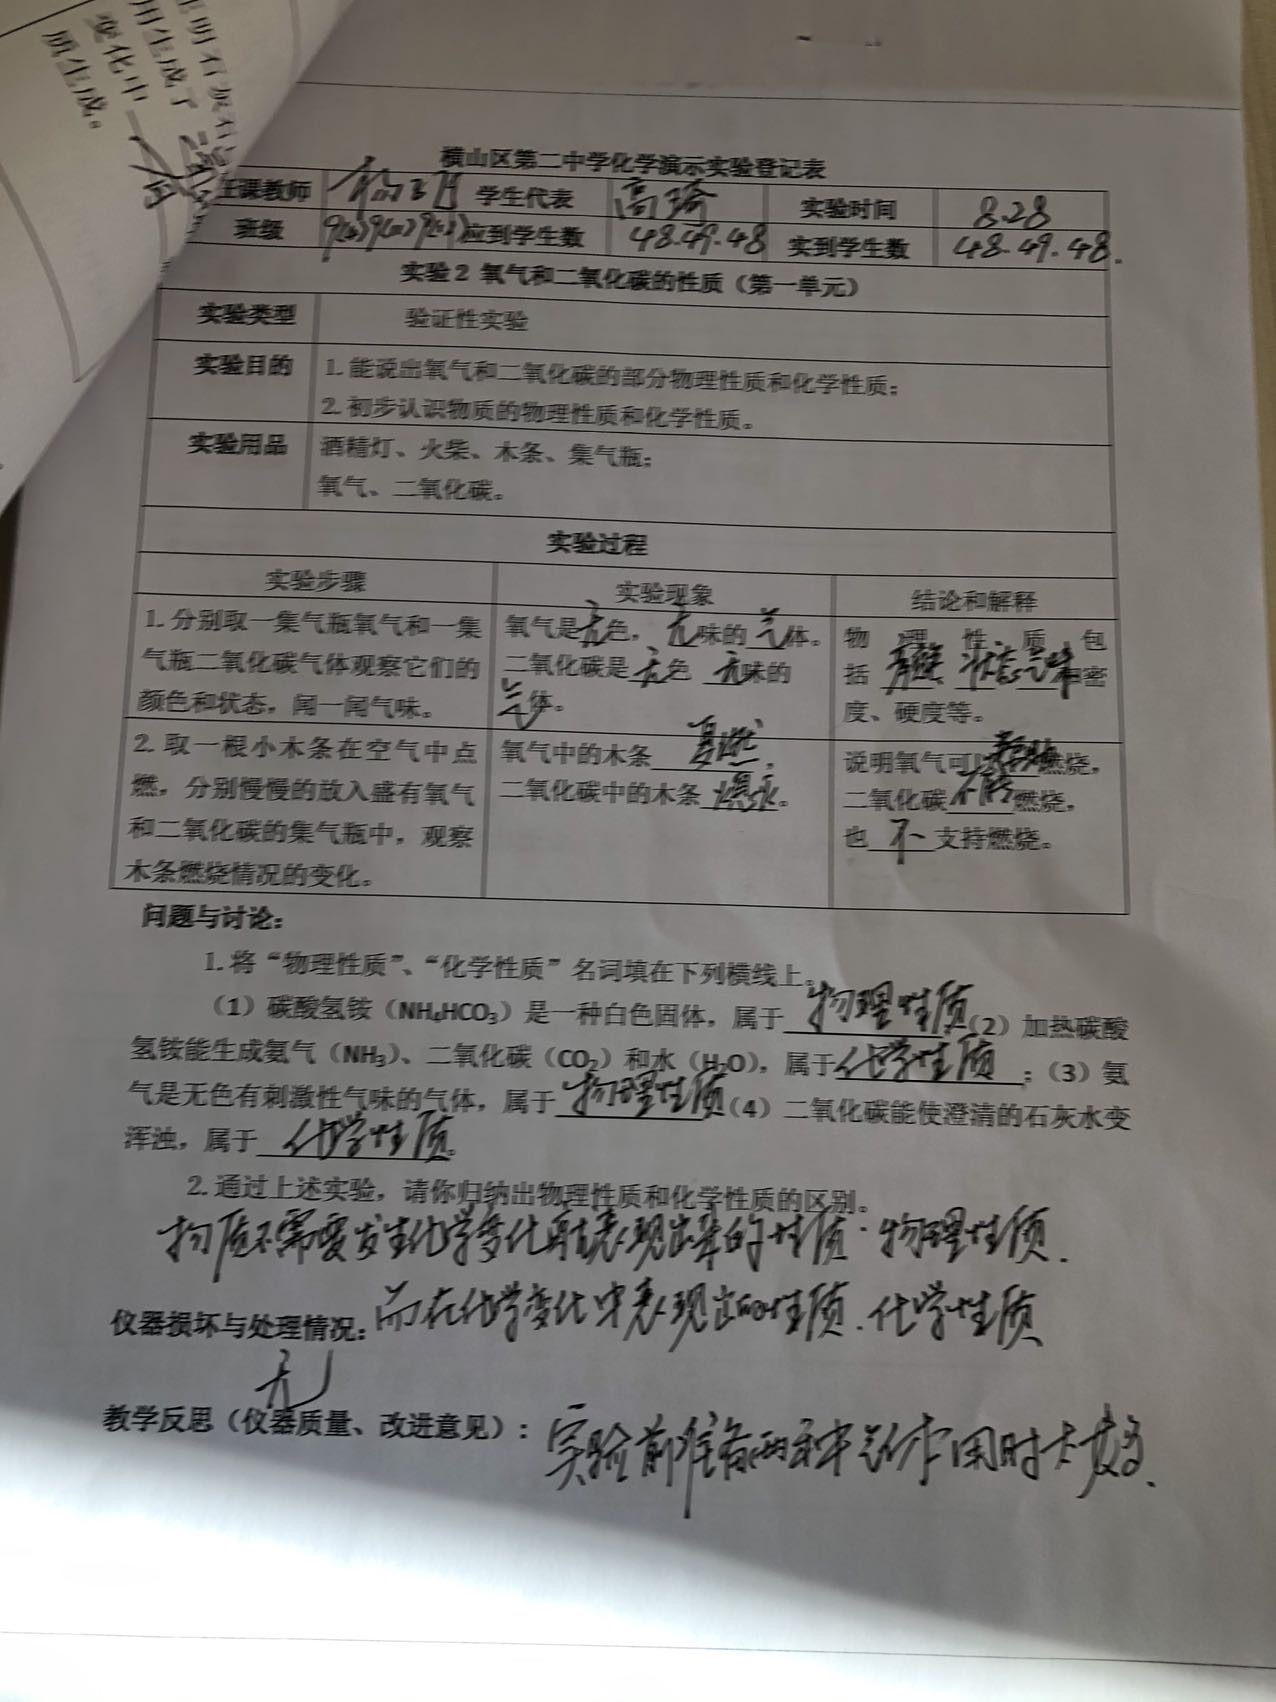 明石灰石
用生成了
变化中
质生成。
横山区第二中学化学演示实验登记表
主课教师 学生代表 高琦 实验时间 8.28
班级 应到学生数 48.49.48 实到学生数 48.49.48.
实验2 氧气和二氧化碳的性质（第一单元）
实验类型 验证性实验
实验目的 1.能说出氧气和二氧化碳的部分物理性质和化学性质；
2.初步认识物质的物理性质和化学性质。
实验用品 酒精灯、火柴、木条、集气瓶；
氧气、二氧化碳。
实验过程
实验步骤 实验现象 结论和解释
1.分别取一集气瓶氧气和一集
气瓶二氧化碳气体观察它们的
颜色和状态，闻一闻气味。
氧气是无色，无味的气体。
二氧化碳是无色 无味的
气体。
物理性质包
括 颜色 状态 气味 和密
度、硬度等。
2.取一根小木条在空气中点
燃，分别慢慢的放入盛有氧气
和二氧化碳的集气瓶中，观察
木条燃烧情况的变化。
氧气中的木条 复燃，
二氧化碳中的木条 熄灭。
说明氧气可以 燃烧，
二氧化碳 不能 燃烧，
也 不 支持燃烧。
问题与讨论：
1.将“物理性质”、“化学性质”名词填在下列横线上。
（1）碳酸氢铵（NH₄HCO₃）是一种白色固体，属于 物理性质（2）加热碳酸
氢铵能生成氨气（NH₃）、二氧化碳（CO₂）和水（H₂O），属于化学性质；（3）氨
气是无色有刺激性气味的气体，属于 物理性质（4）二氧化碳能使澄清的石灰水变
浑浊，属于 化学性质。
2.通过上述实验，请你归纳出物理性质和化学性质的区别。
物质不需要发生化学变化就表现出来的性质.物理性质.
仪器损坏与处理情况：而在化学变化中表现出的性质.化学性质
无
教学反思（仪器质量、改进意见）：实验前准备两种气体用时太多.